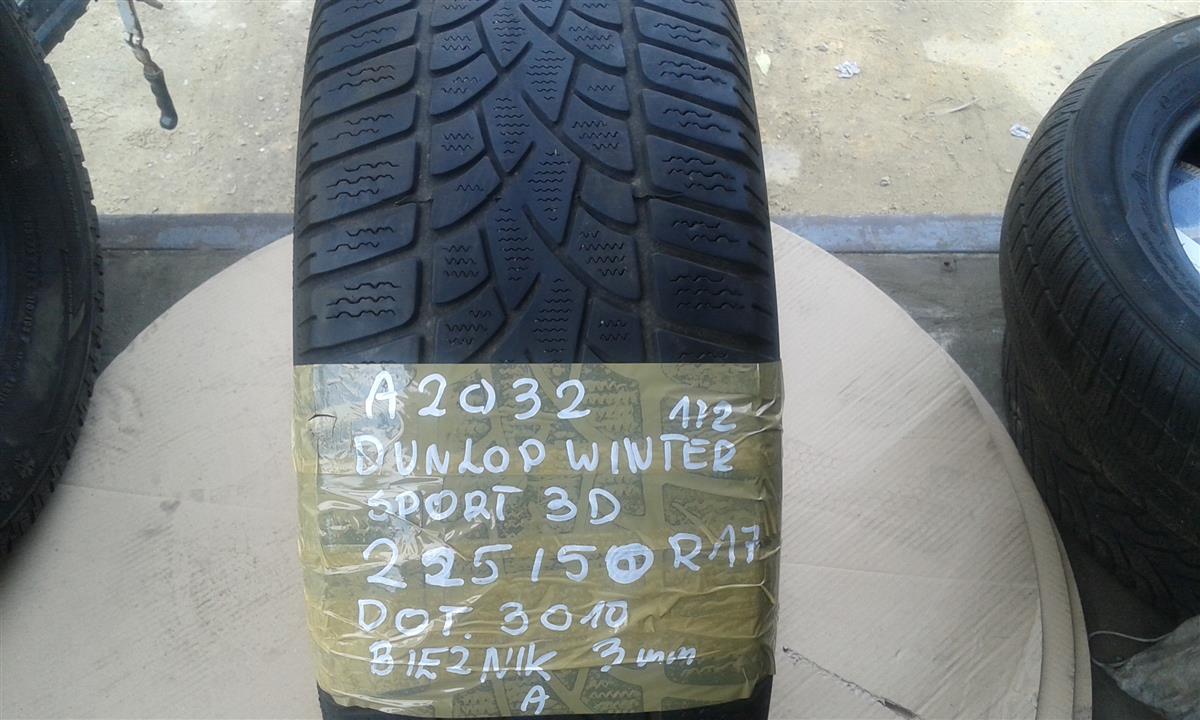 A2032
1/2
DUNLOP WINTER
SPORT 3D
225/50 R17
DOT. 3010
BIEZNIK 3mm
A